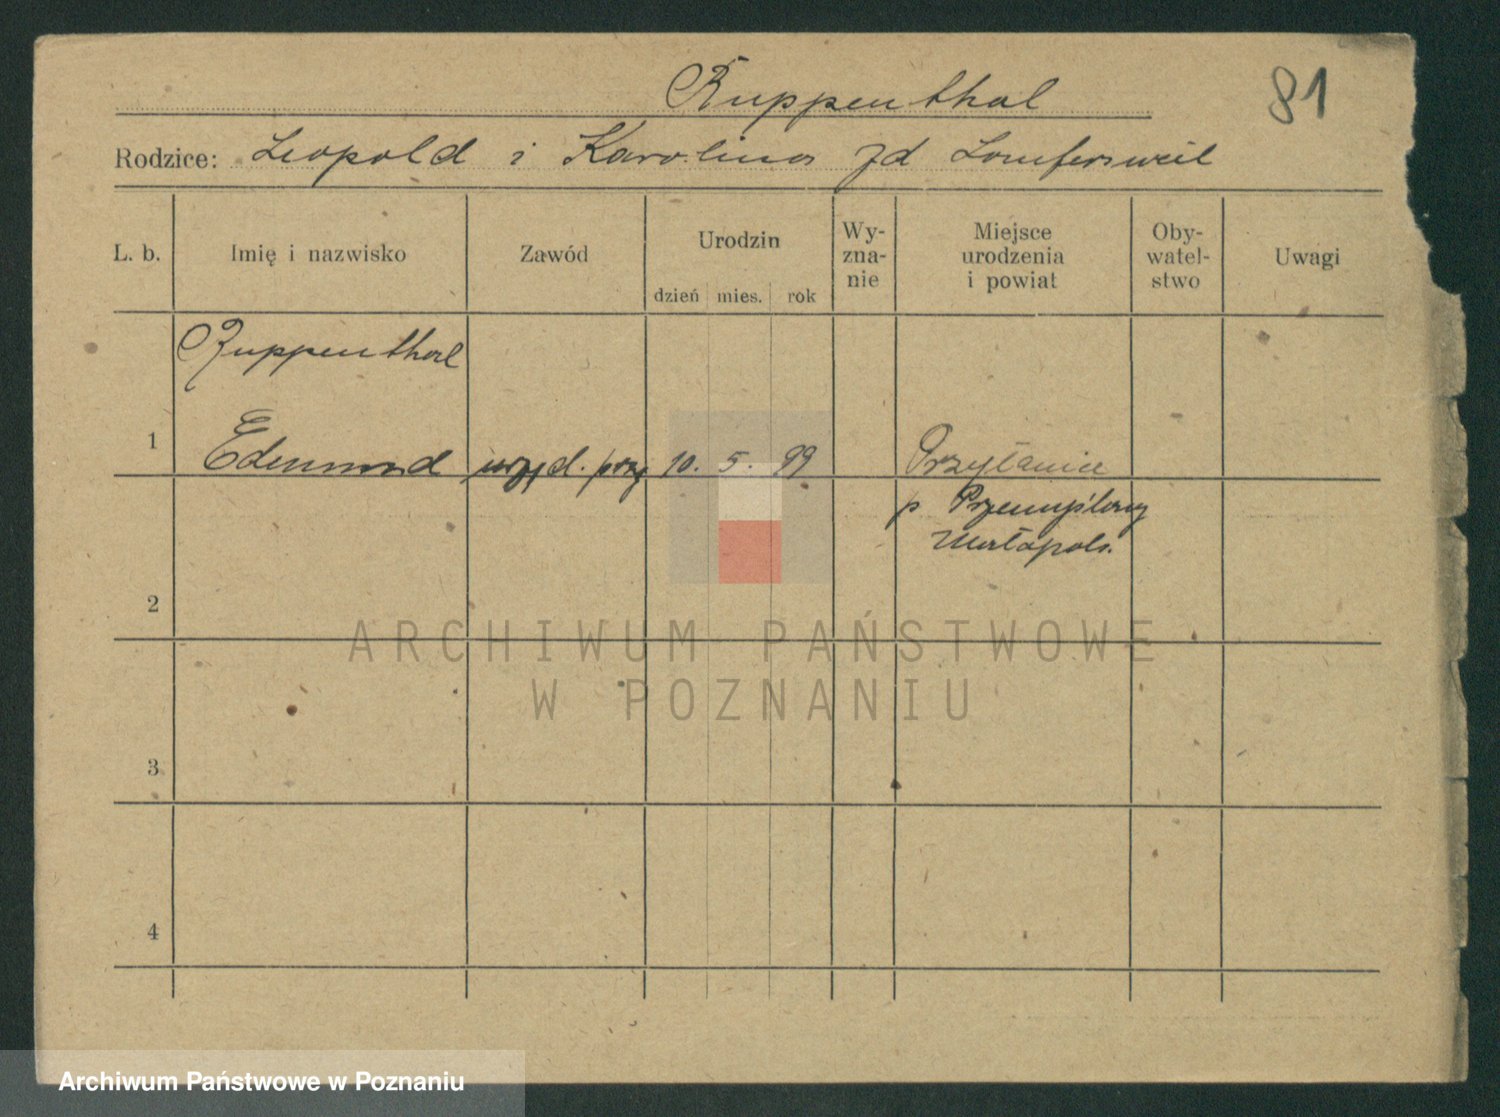 Ruppenthal
81
Rodzice: Leopold i Karolina zd
L. b.
Imię i nazwisko
Zawód
Urodzin
dzień mies. rok
Wy-
zna-
nie
Miejsce
urodzenia
i powiat
Oby-
watel-
stwo
Uwagi
Ruppenthal
1 Edmund 10. 5. 99
p Przemyślany
Małopols.
2
3
4
ARCHIWUM PAŃSTWOWE
W POZNANIU
Archiwum Państwowe w Poznaniu